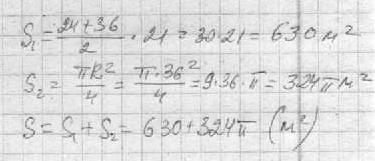 S₁ = (24+36)/2 · 21 = 30·21 = 630 м²
S₂ = πR²/4 = π·36²/4 = 9·36·π = 324π м²
S = S₁ + S₂ = 630 + 324π (м²)